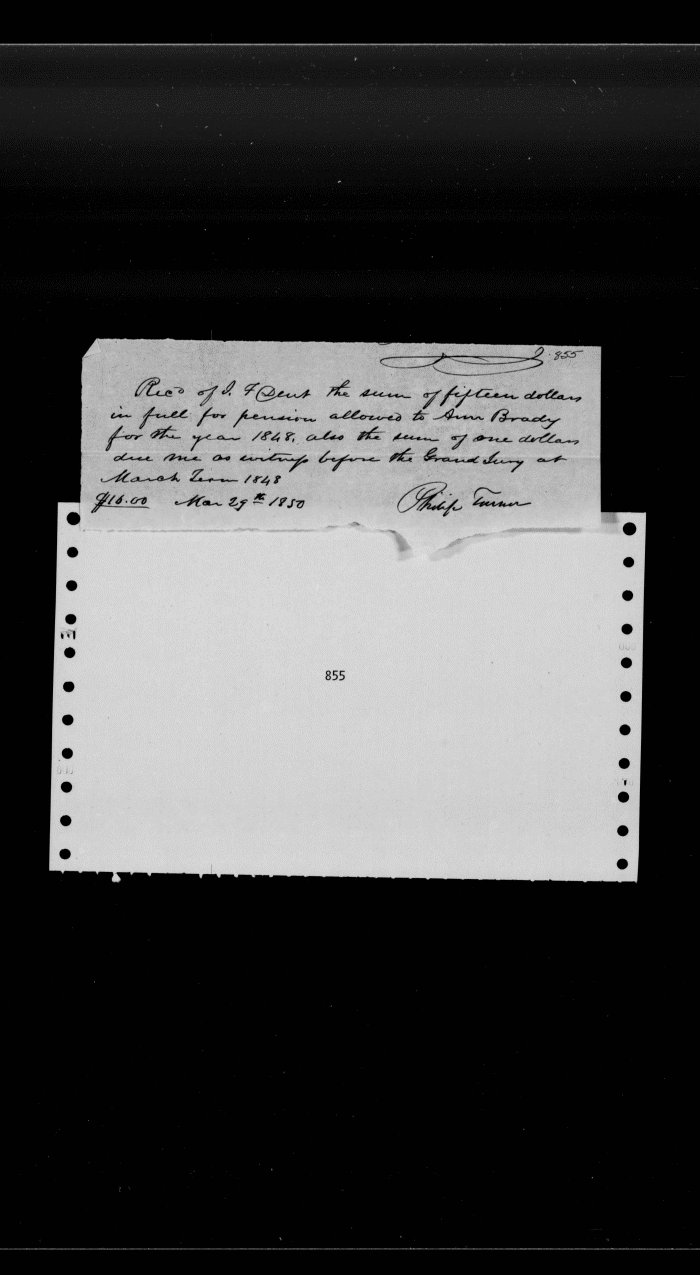 855
Recd of J. F Dent the sum of fifteen dollars
in full for pension allowed to Ann Brady
for the year 1848, also the sum of one dollars
due me as witness before the Grand Jury at
March Term 1848
$16.00 Mar 29th 1850 Philip Turner
855